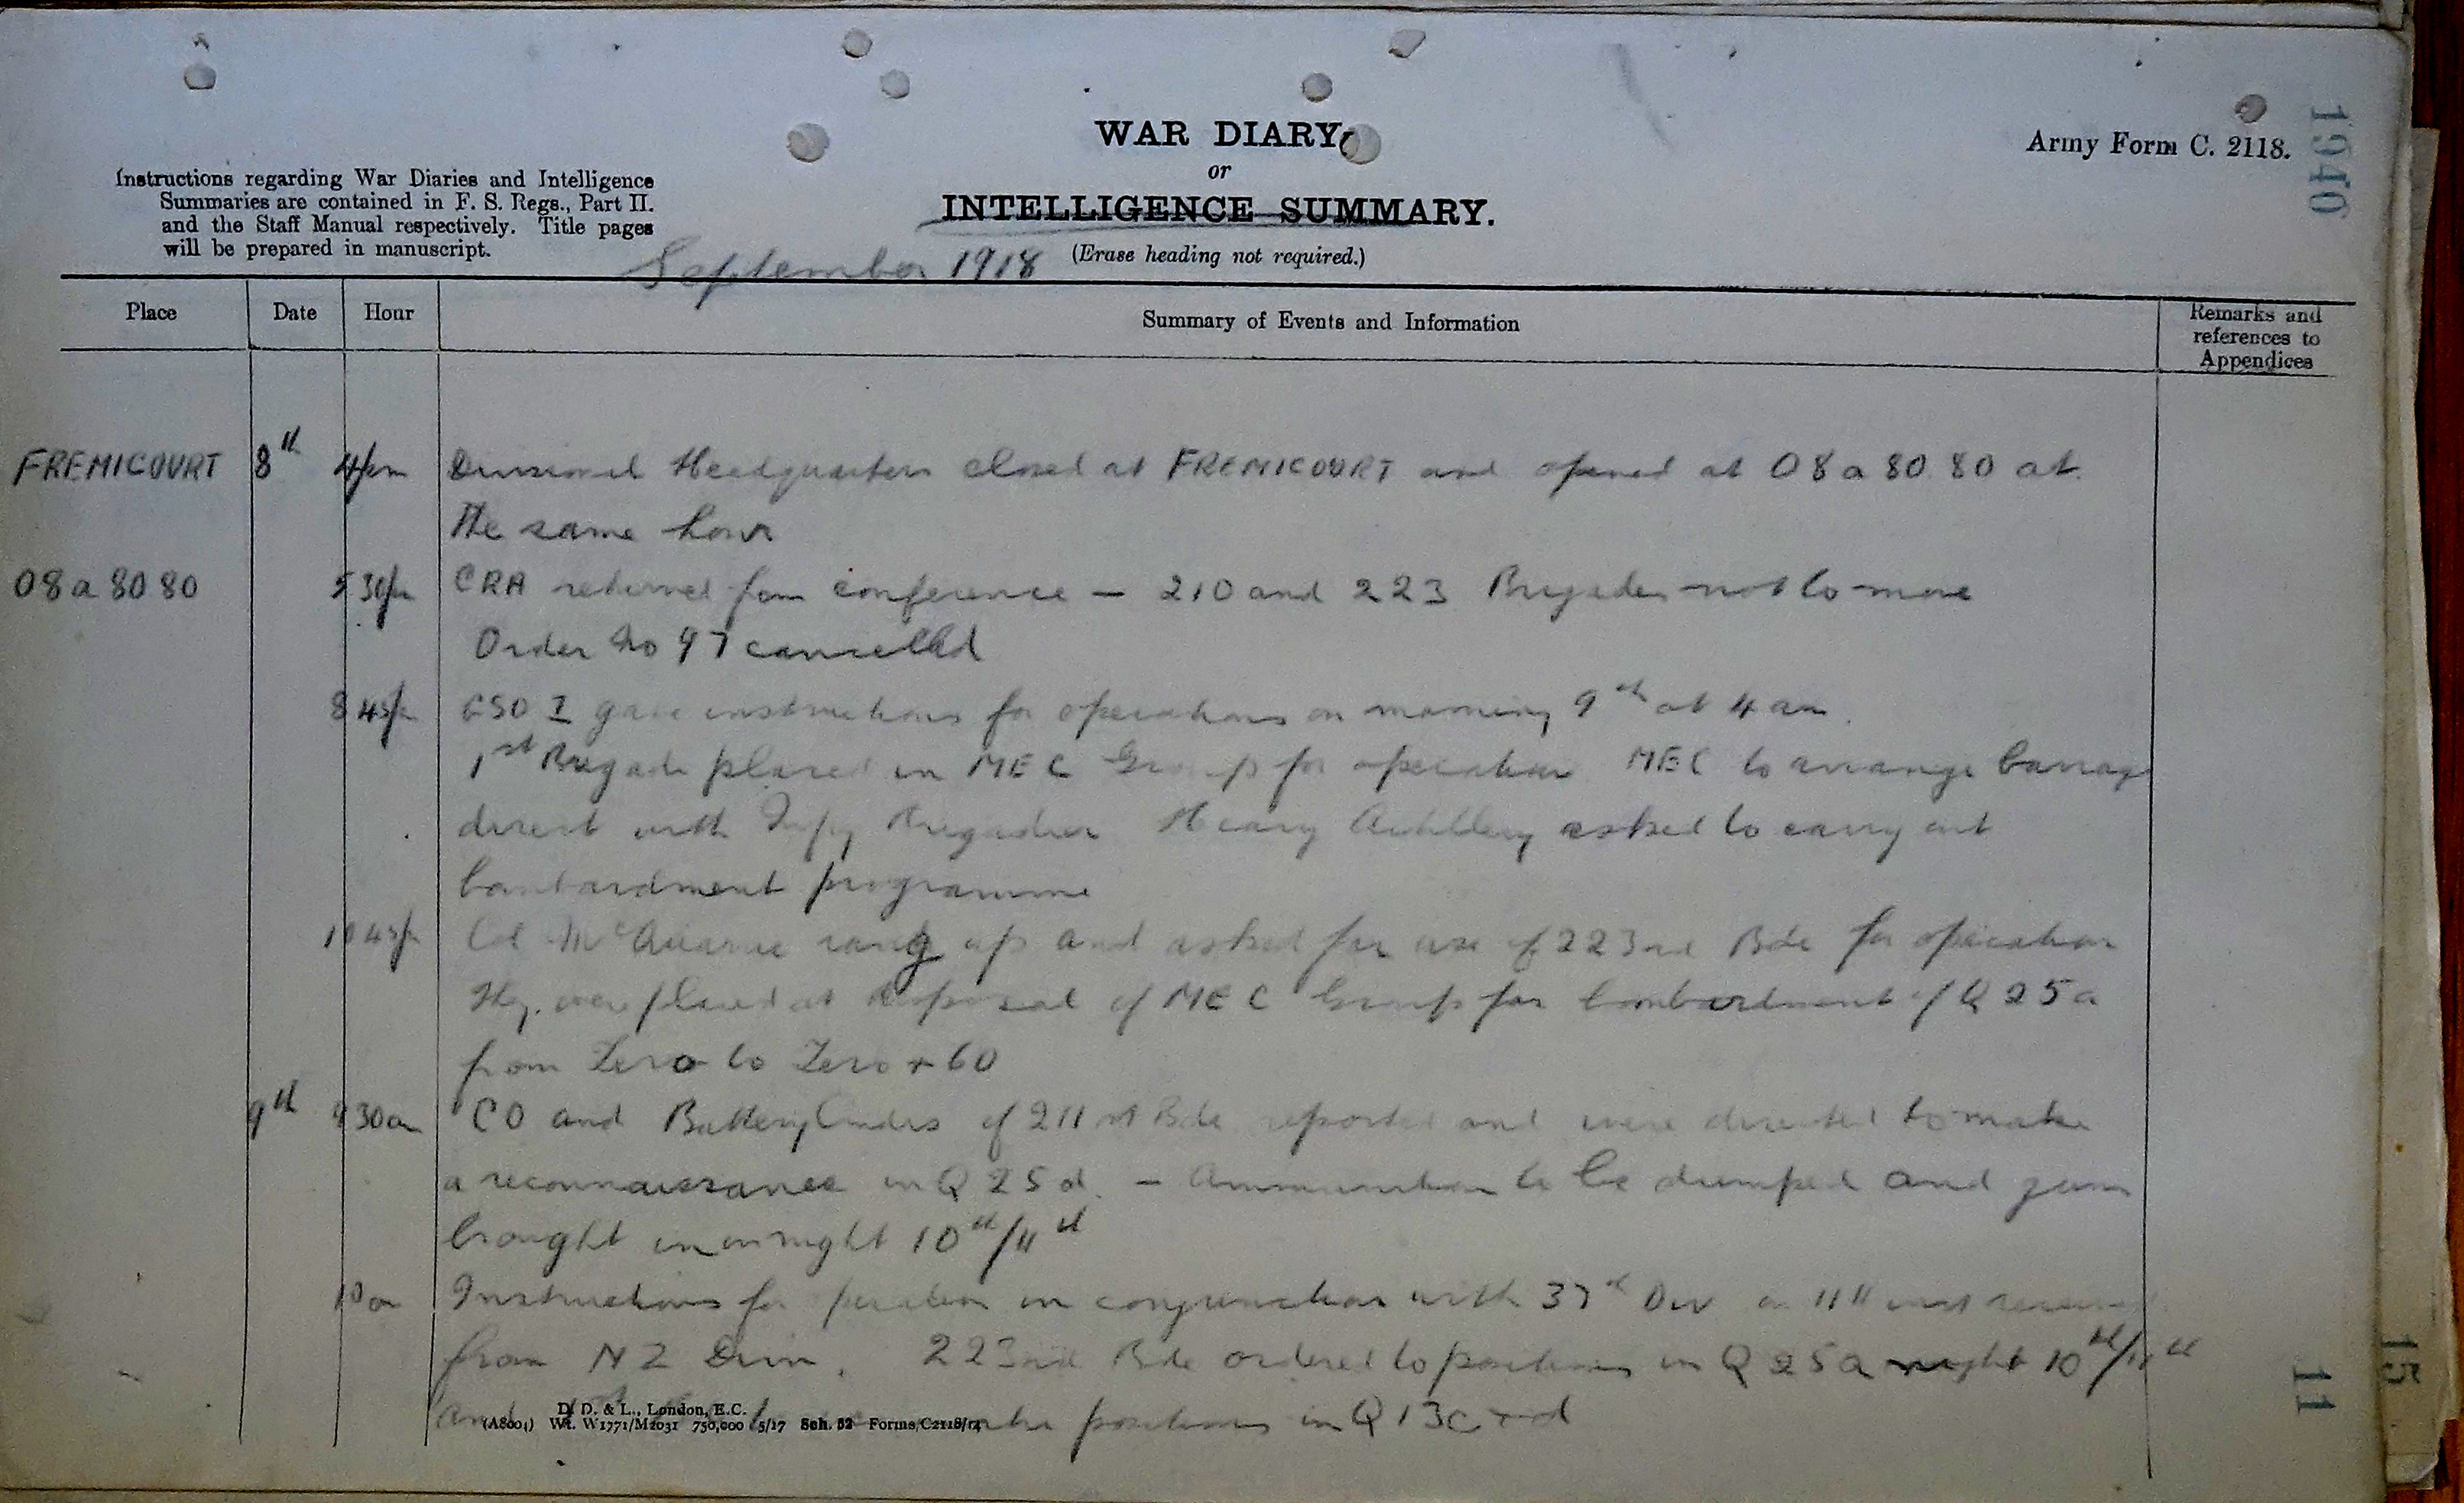 WAR DIARY
or
INTELLIGENCE SUMMARY.
(Erase heading not required.)
Army Form C. 2118.
1940
Instructions regarding War Diaries and Intelligence
Summaries are contained in F. S. Regs., Part II.
and the Staff Manual respectively. Title pages
will be prepared in manuscript.
September 1918
Place Date Hour Summary of Events and Information Remarks and
references to
Appendices
FREMICOURT 8th 4pm Divisional Headquarters closed at FREMICOURT and opened at O8a 80 80 at
the same hour
O8a 80 80 5 30pm CRA returned from conference — 210 and 223 Brigades not to move
Order No 97 cancelled
8 45pm GSO I gave instructions for operations on morning 9th at 4 am.
1st Brigade placed in MEC Group for operation MEC to arrange barrage
direct with Infy Brigadier Heavy Artillery asked to carry out
bombardment programme
10 45pm Col rang up and asked for use of 223rd Bde for operation
They were placed at disposal of MEC Group for bombardment of Q 25a
from Zero to Zero + 60
9th 9 30am CO and Battery Cmdrs of 211th Bde reported and were directed to make
a reconnaissance in Q 25d. — Ammunition to be dumped and guns
brought in on night 10th/11th
10am Instructions for operation in conjunction with 37th Div on 11th inst received
from NZ Divn. 223rd Bde ordered to positions in Q 25a night 10th/11th
and positions in Q 13c + d
D. D. & L., London, E.C.
(A8004) Wt. W1771/M2031 750,000 5/17 Sch. 52 Forms/C2118/14
11
15